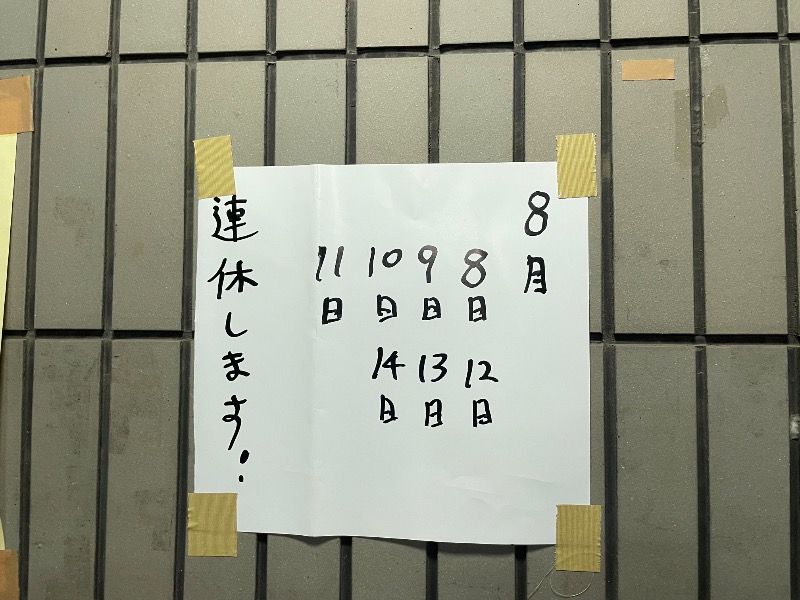 8月
8日 9日 10日 11日
12日 13日 14日
連休します!